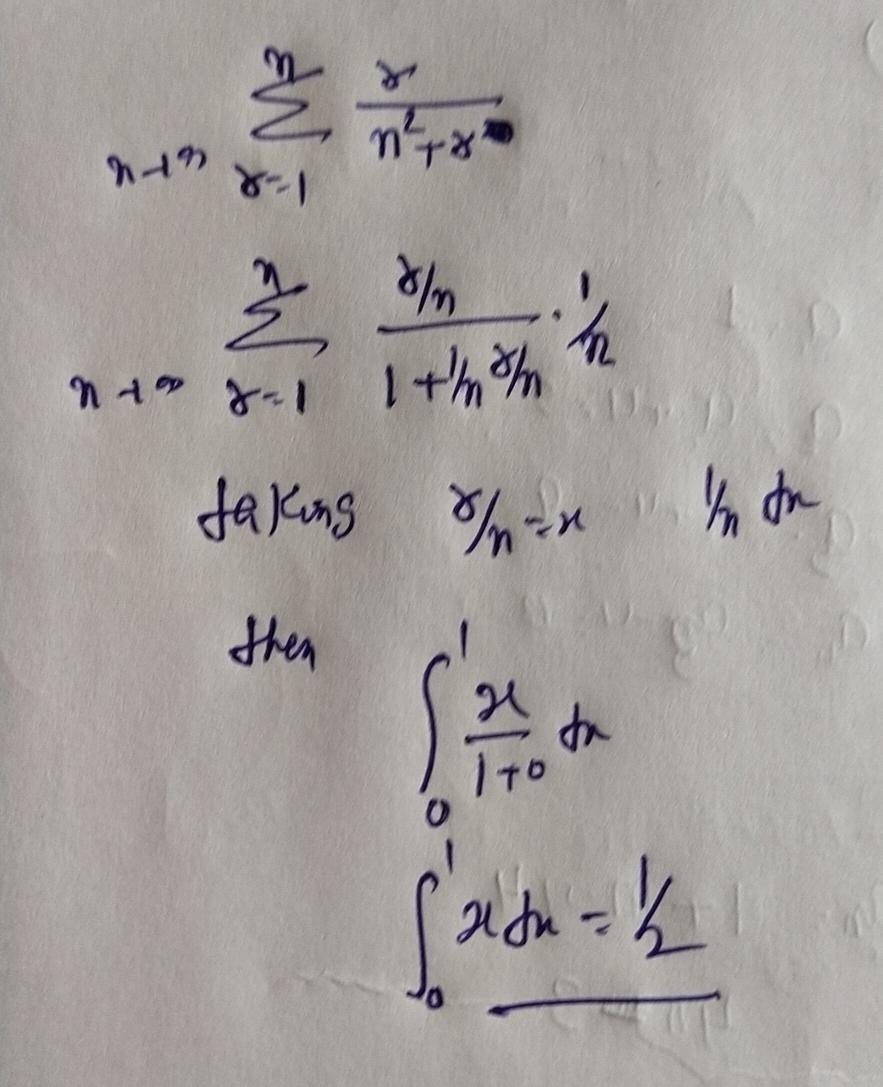 n→∞ Σ_{r=1}^{n} r/(n²+r)
n→∞ Σ_{r=1}^{n} (r/n)/(1+1/n r/n) · 1/n
taking r/n = x 1/n dx
then ∫₀¹ x/(1+0) dx
∫₀¹ x dx = 1/2